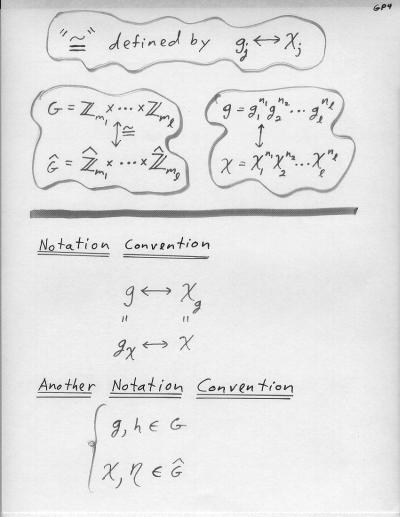 GP4
"≅" defined by g_j ↔ χ_j
G = ℤ_{m_1} × ⋯ × ℤ_{m_ℓ}
↕ ≅
Ĝ = ℤ̂_{m_1} × ⋯ × ℤ̂_{m_ℓ}
g = g_1^{n_1} g_2^{n_2} ⋯ g_ℓ^{n_ℓ}
↕
χ = χ_1^{n_1} χ_2^{n_2} ⋯ χ_ℓ^{n_ℓ}
Notation Convention
g ↔ χ_g
" "
g_χ ↔ χ
Another Notation Convention
g, h ∈ G
χ, η ∈ Ĝ